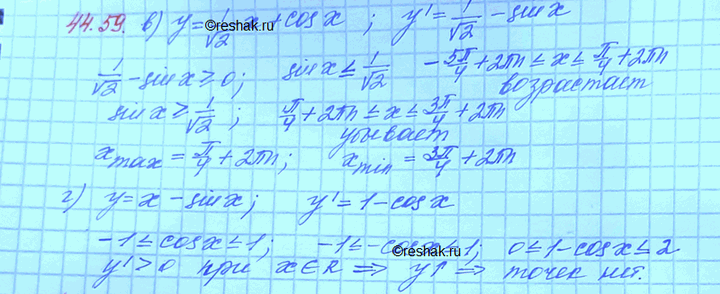 44.59. в) y = 1/√2 x + cos x ; y' = 1/√2 - sin x
1/√2 - sin x ≥ 0; sin x ≤ 1/√2 - 5π/4 + 2πn ≤ x ≤ π/4 + 2πn
возрастает
sin x ≥ 1/√2 ; π/4 + 2πn ≤ x ≤ 3π/4 + 2πn
убывает
x max = π/4 + 2πn; x min = 3π/4 + 2πn
г) y = x - sin x; y' = 1 - cos x
-1 ≤ cos x ≤ 1; -1 ≤ -cos x ≤ 1; 0 ≤ 1 - cos x ≤ 2
y' > 0 при x ∈ R ⇒ y↑ ⇒ точек нет.
©www.gdz.ru
©www.gdz.ru